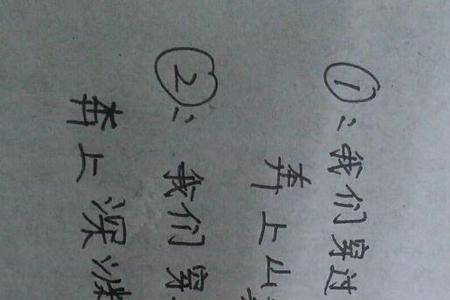 ①：我们穿过
奔上山
②：我们穿
奔上深